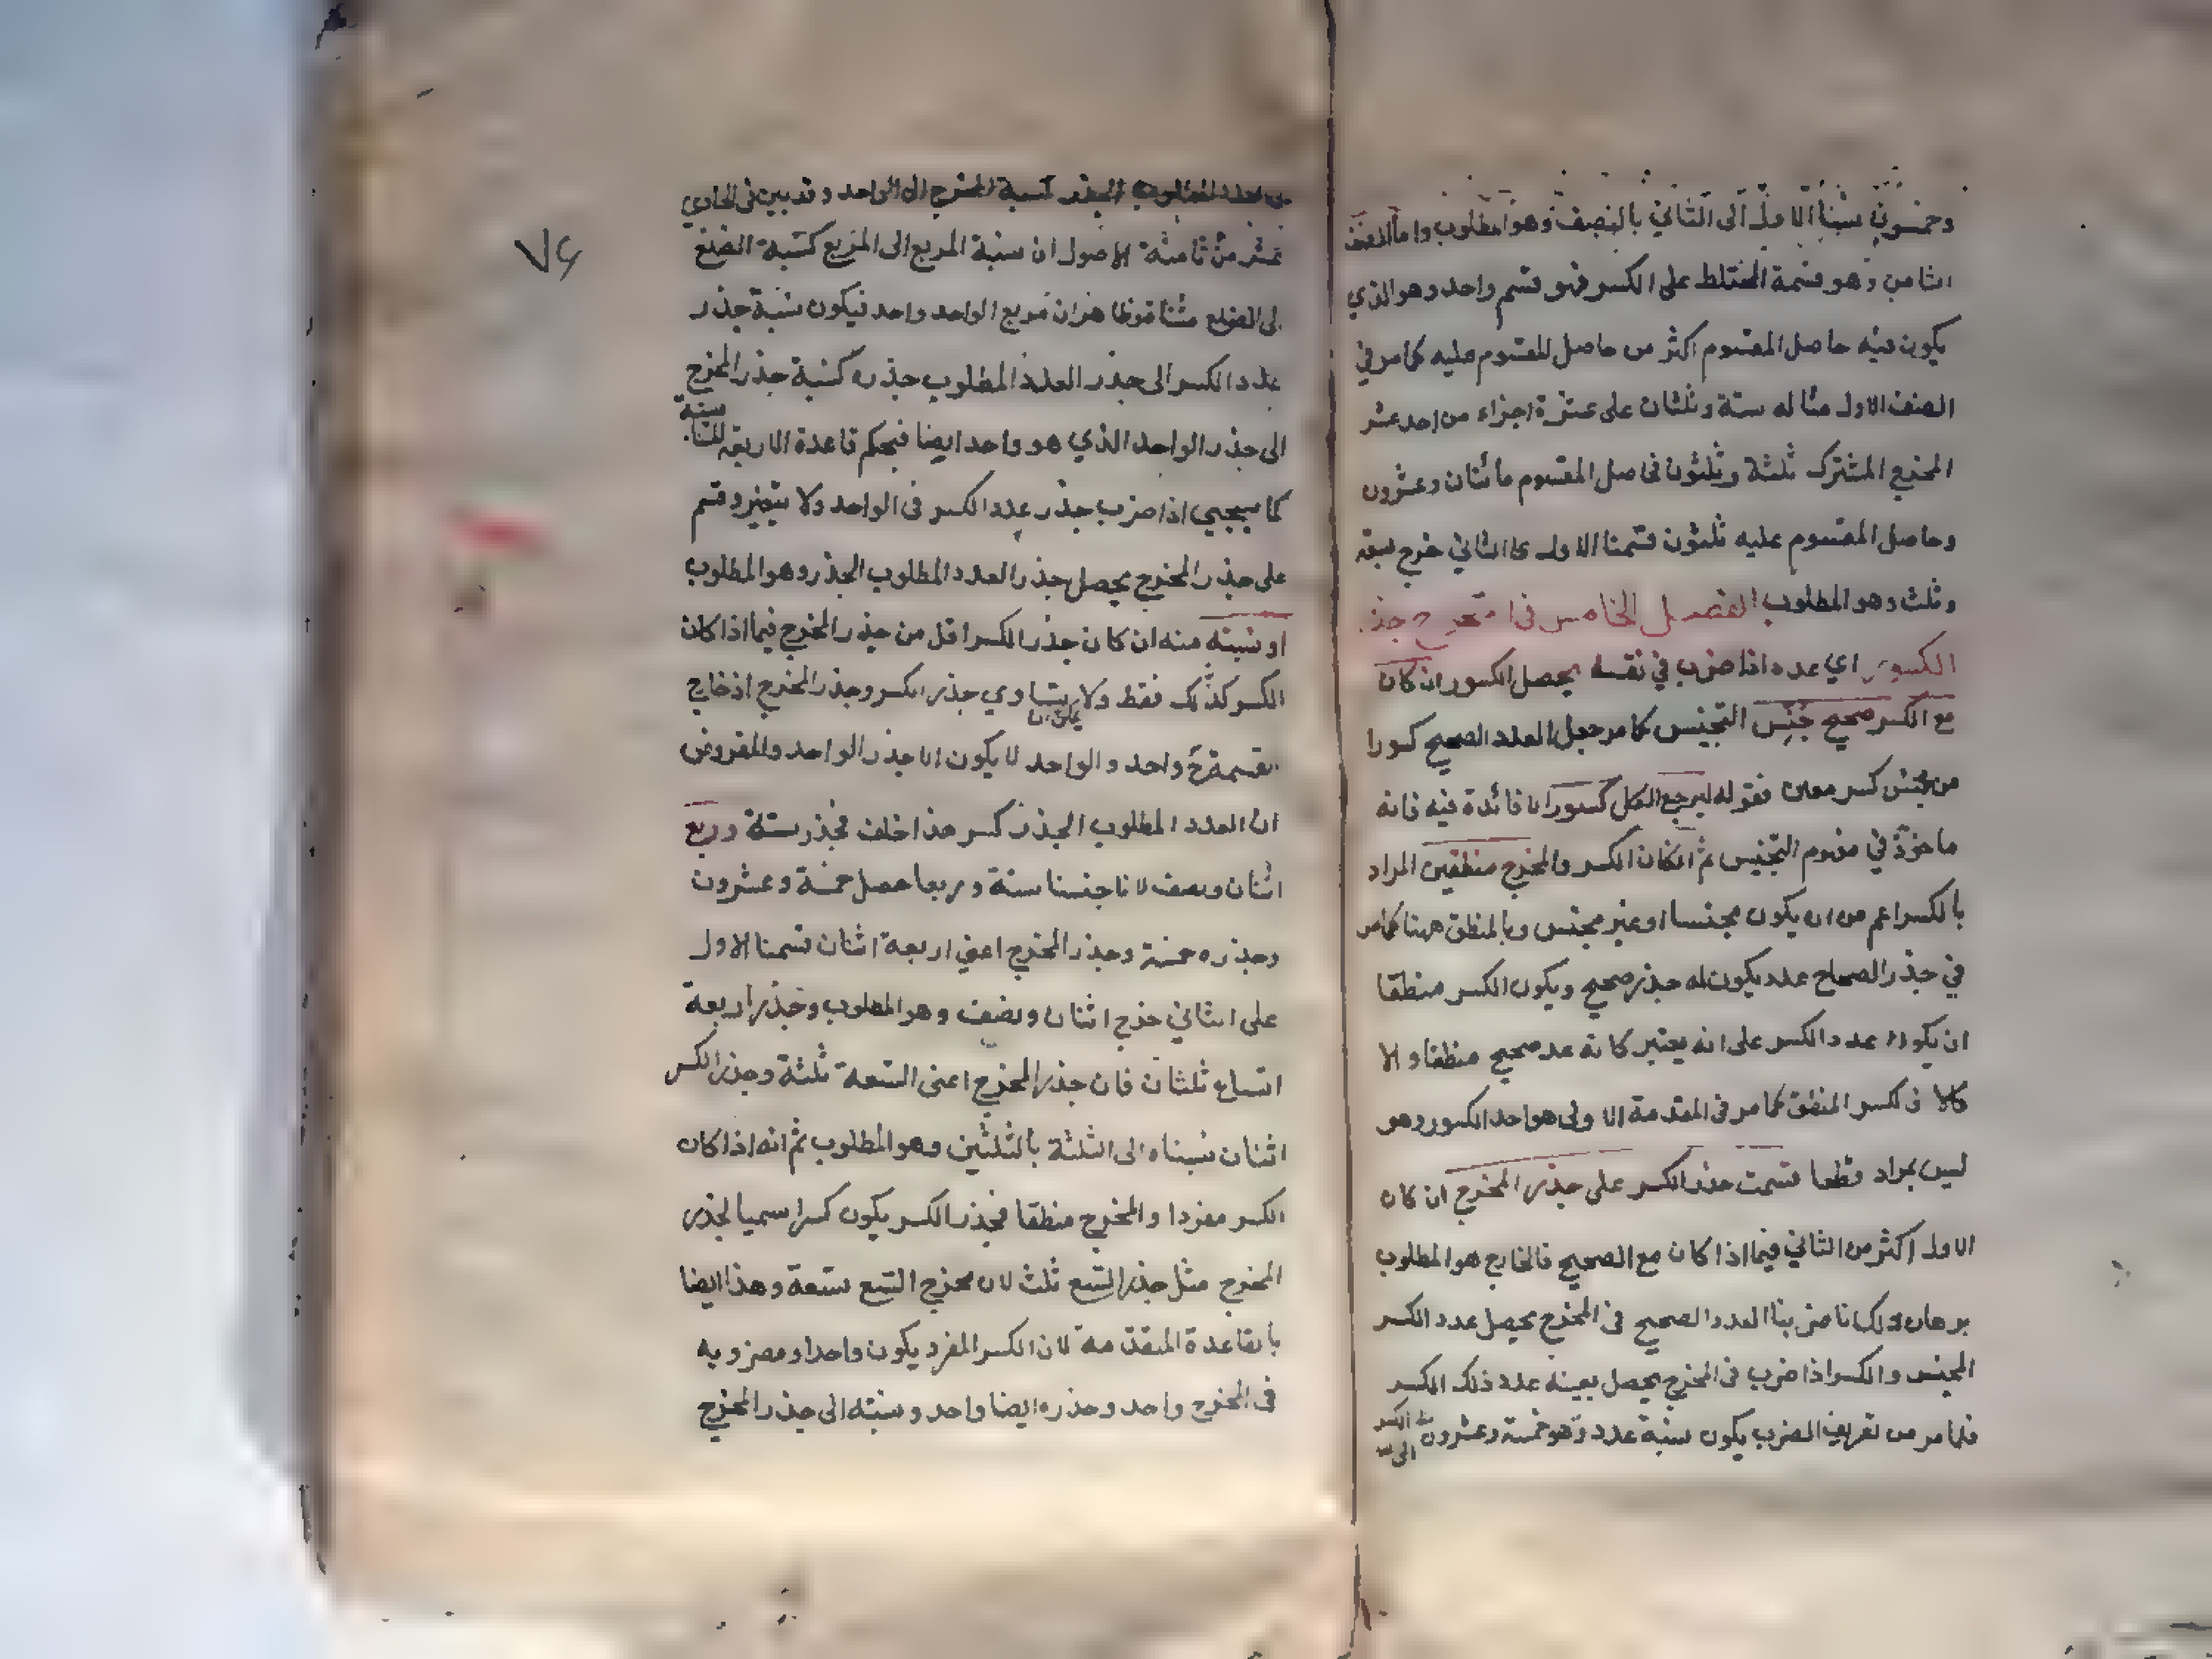 وخمسون نسبنا الاول الى الثاني بالنصف وهو المطلوب واما الصنف
الثامن وهو قسمة المختلط على الكسر فهو قسم واحد وهو الذي
يكون فيه حاصل المقسوم اكثر من حاصل المقسوم عليه كما مر في
الصنف الاول مثاله ستة وثلثان على عشرة اجزاء من احد عشر
المخرج المشترك ثلثة وثلثون فحاصل المقسوم مأئتان وعشرون
وحاصل المقسوم عليه ثلثون قسمنا الاول على الثاني خرج سبعة
وثلث وهو المطلوب الفصل الخامس في استخراج جذر
الكسور اي عدد اذا ضرب في نفسه يحصل الكسور ان كان
مع الكسر صحيح جُنِّس التجنيس كما مر جعل العدد الصحيح كسورا
من جنس كسر معين فقوله ليرجع الكل كسورا لا فائدة فيه فانه
ماخوذ في مفهوم التجنيس ثم ان كان الكسر والمخرج منطقين المراد
بالكسر اعم من ان يكون مجنسا او غير مجنس وبالمنطق ههنا كما مر
في جذر الصحاح عدد يكون له جذر صحيح ويكون الكسر منطقا
ان يكون عدد الكسر على انه يعتبر كانه عدد صحيح منطقا و الا
فالكسر المنطق كما مر في المقدمة الاولى هو احد الكسور وهو
ليس بمراد قطعا قسمت جذر الكسر على جذر المخرج ان كان
الاول اكثر من الثاني فيما اذا كان مع الصحيح فالخارج هو المطلوب
برهان ذلك انا ضربنا العدد الصحيح في المخرج يحصل عدد الكسر
المجنس والكسر اذا ضرب في المخرج يحصل بعينه عدد ذلك الكسر
فلما مر من تعريف الضرب يكون نسبة عدد وهو خمسة وعشرون الكسر الى
٧٤
العدد المطلوب الجذر كنسبة المخرج الى الواحد وقد بين في الحادي
عشر من ثامنة الاصول ان نسبة المربع الى المربع كنسبة الضلع
الى الضلع مثناة وظاهر ان مربع الواحد واحد فيكون نسبة جذر
عدد الكسر الى جذر العدد المطلوب جذره كنسبة جذر المخرج
الى جذر الواحد الذي هو واحد ايضا فبحكم قاعدة الاربعة المتناسبة
كما سيجيي اذا ضرب جذر عدد الكسر في الواحد ولا يتغير وقسم
على جذر المخرج يحصل جذر العدد المطلوب الجذر وهو المطلوب
او نسبته منه ان كان جذر الكسر اقل من جذر المخرج فيما اذا كان
الكسر كذلك فقط ولا يمكن ان يتساوي جذر الكسر وجذر المخرج اذ خارج
القسمة ح واحد والواحد لا يكون الا جذر الواحد والمفروض
ان العدد المطلوب الجذر كسر هذا خلف فجذر ستة وربع
اثنان ونصف لانا جنسنا ستة وربعا حصل خمسة وعشرون
وجذره خمسة وجذر المخرج اعني اربعة اثنان قسمنا الاول
على الثاني خرج اثنان ونصف وهو المطلوب وجذر اربعة
اتساع ثلثان فان جذر المخرج اعنى التسعة ثلثة وجذر الكسر
اثنان نسبناه الى الثلثة بالثلثين وهو المطلوب ثم انه اذا كان
الكسر مفردا والمخرج منطقا فجذر الكسر يكون كسرا سميا لجذر
المخرج مثل جذر التسع ثلث لان مخرج التسع تسعة وهذا ايضا
بالقاعدة المتقدمة لان الكسر المفرد يكون واحدا ومضروبه
في المخرج واحد وجذره ايضا واحد ونسبته الى جذر المخرج